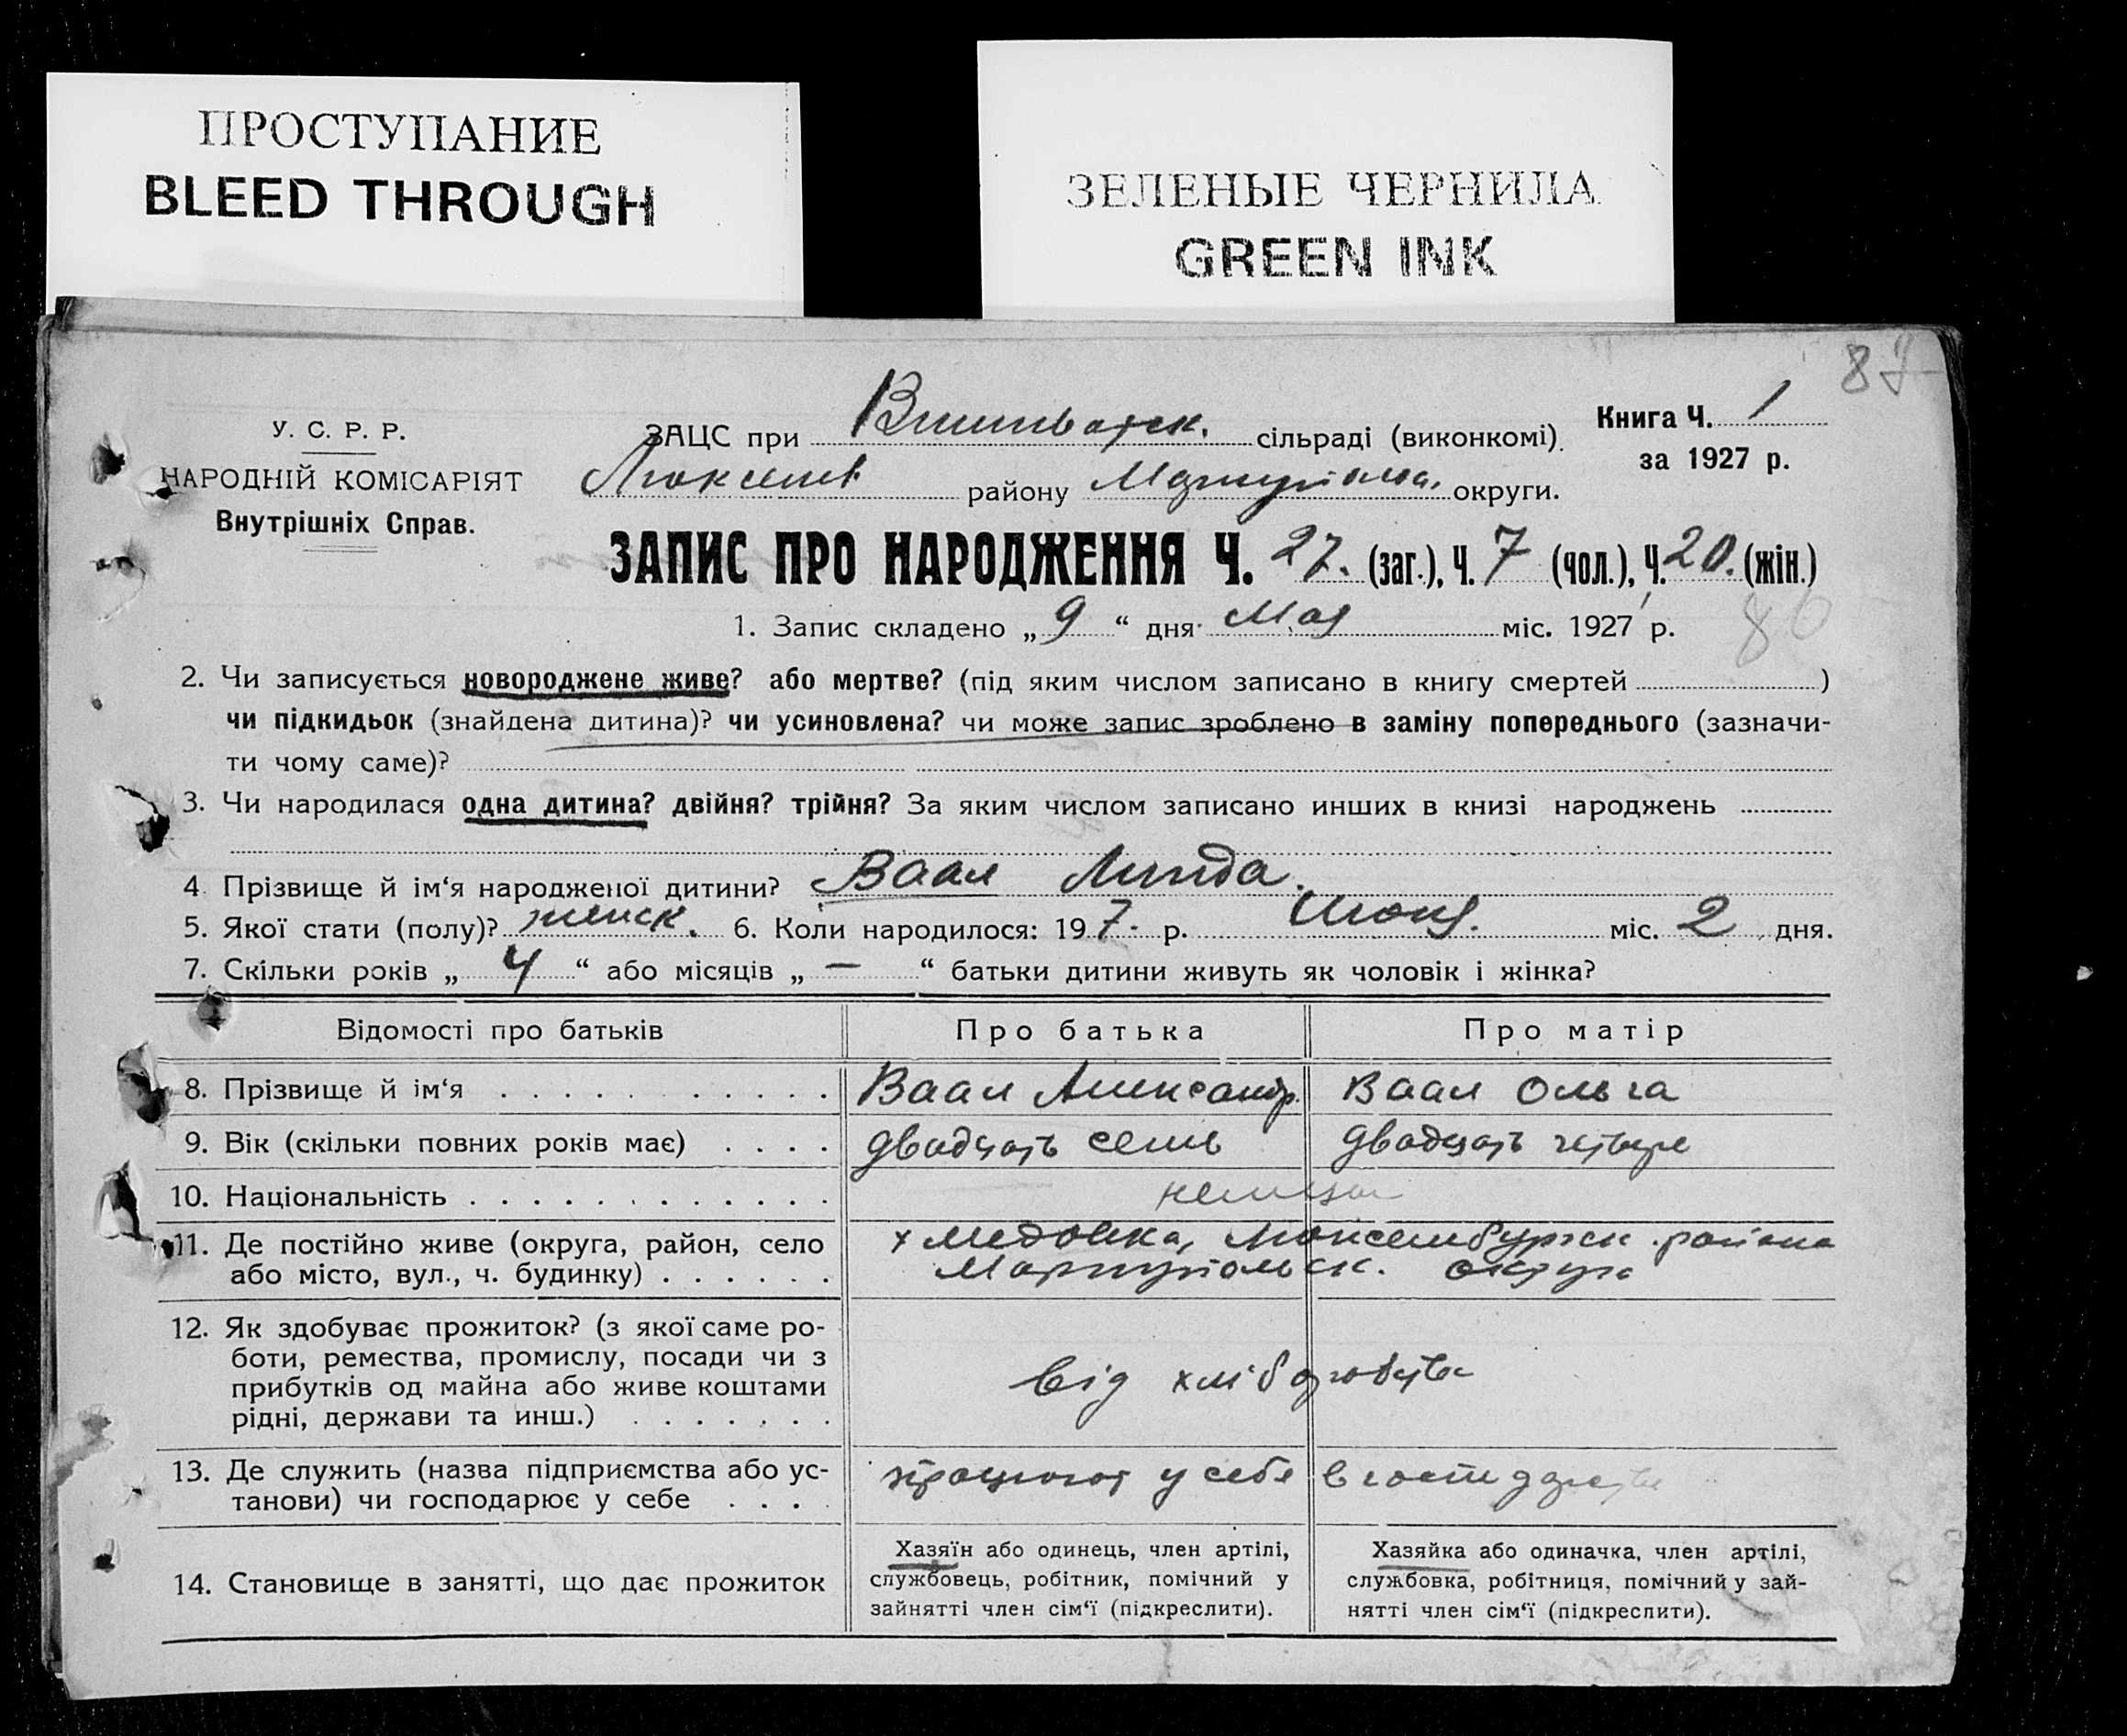 ПРОСТУПАНИЕ
BLEED THROUGH
ЗЕЛЕНЫЕ ЧЕРНИЛА
GREEN INK
87
У. С. Р. Р.
НАРОДНІЙ КОМІСАРІЯТ
Внутрішніх Справ.
ЗАЦС при сільраді (виконкомі).
Люксемб. району Мариупольск. округи.
Книга Ч. 1
за 1927 р.
ЗАПИС ПРО НАРОДЖЕННЯ Ч. 27. (заг.), Ч. 7 (чол.), Ч. 20. (жін.)
1. Запис складено „ 9 “ дня Мая міс. 1927 р.
86
2. Чи записується новороджене живе? або мертве? (під яким числом записано в книгу смертей )
чи підкидьок (знайдена дитина)? чи усиновлена? чи може запис зроблено в заміну попереднього (зазначи-
ти чому саме)?
3. Чи народилася одна дитина? двійня? трійня? За яким числом записано инших в книзі народжень
4. Прізвище й ім‘я народженої дитини? Ваал Линда.
5. Якої стати (полу)? женск. 6. Коли народилося: 19 7. р. міс. 2 дня.
7. Скільки років „ 4 “ або місяців „ — “ батьки дитини живуть як чоловік і жінка?
Відомості про батьків Про батька Про матір
8. Прізвище й ім‘я Ваал Александр. Ваал Ольга
9. Вік (скільки повних років має) двадцать семь двадцать четыре
10. Національність немцы
11. Де постійно живе (округа, район, село х Медовка, Люксембургск. района
або місто, вул., ч. будинку) Мариупольск. округа
12. Як здобуває прожиток? (з якої саме ро-
боти, ремества, промислу, посади чи з
прибутків од майна або живе коштами
рідні, держави та инш.) від хліборобства
13. Де служить (назва підприємства або ус-
танови) чи господарює у себе працюют у себе в
14. Становище в занятті, що дає прожиток
Хазяїн або одинець, член артілі,
службовець, робітник, помічний у
зайнятті член сім‘ї (підкреслити).
Хазяйка або одиначка, член артілі,
службовка, робітниця, помічний у зай-
нятті член сім‘ї (підкреслити).